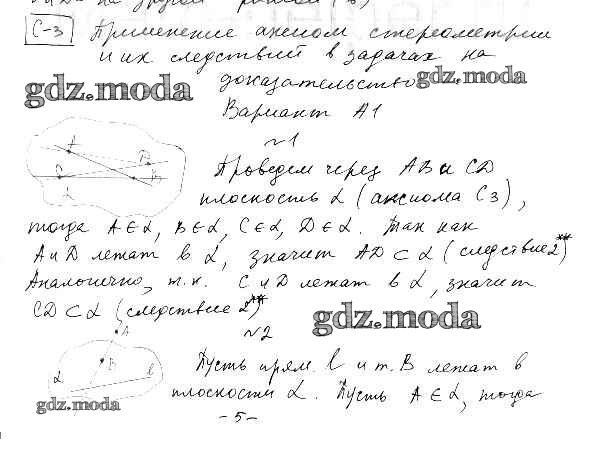 С-3 Применение аксиом стереометрии
и их следствий в задачах на
gdz.moda доказательство gdz.moda
Вариант А1
№1
A
C D B
α
Проведем через AB и CD
плоскость α (аксиома С3),
тогда A∈α, B∈α, C∈α, D∈α. Так как
A и D лежат в α, значит AD⊂α (следствие 2**)
Аналогично, т.к. C и D лежат в α, значит
CD⊂α (следствие 2**)
gdz.moda
№2
A
B
α l
Пусть прям. l и т. B лежат в
плоскости α. Пусть A∈α, тогда
gdz.moda
-5-